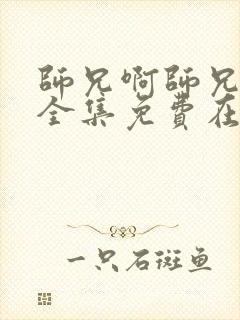 師兄啊師兄
全集免費在
一只石斑鱼